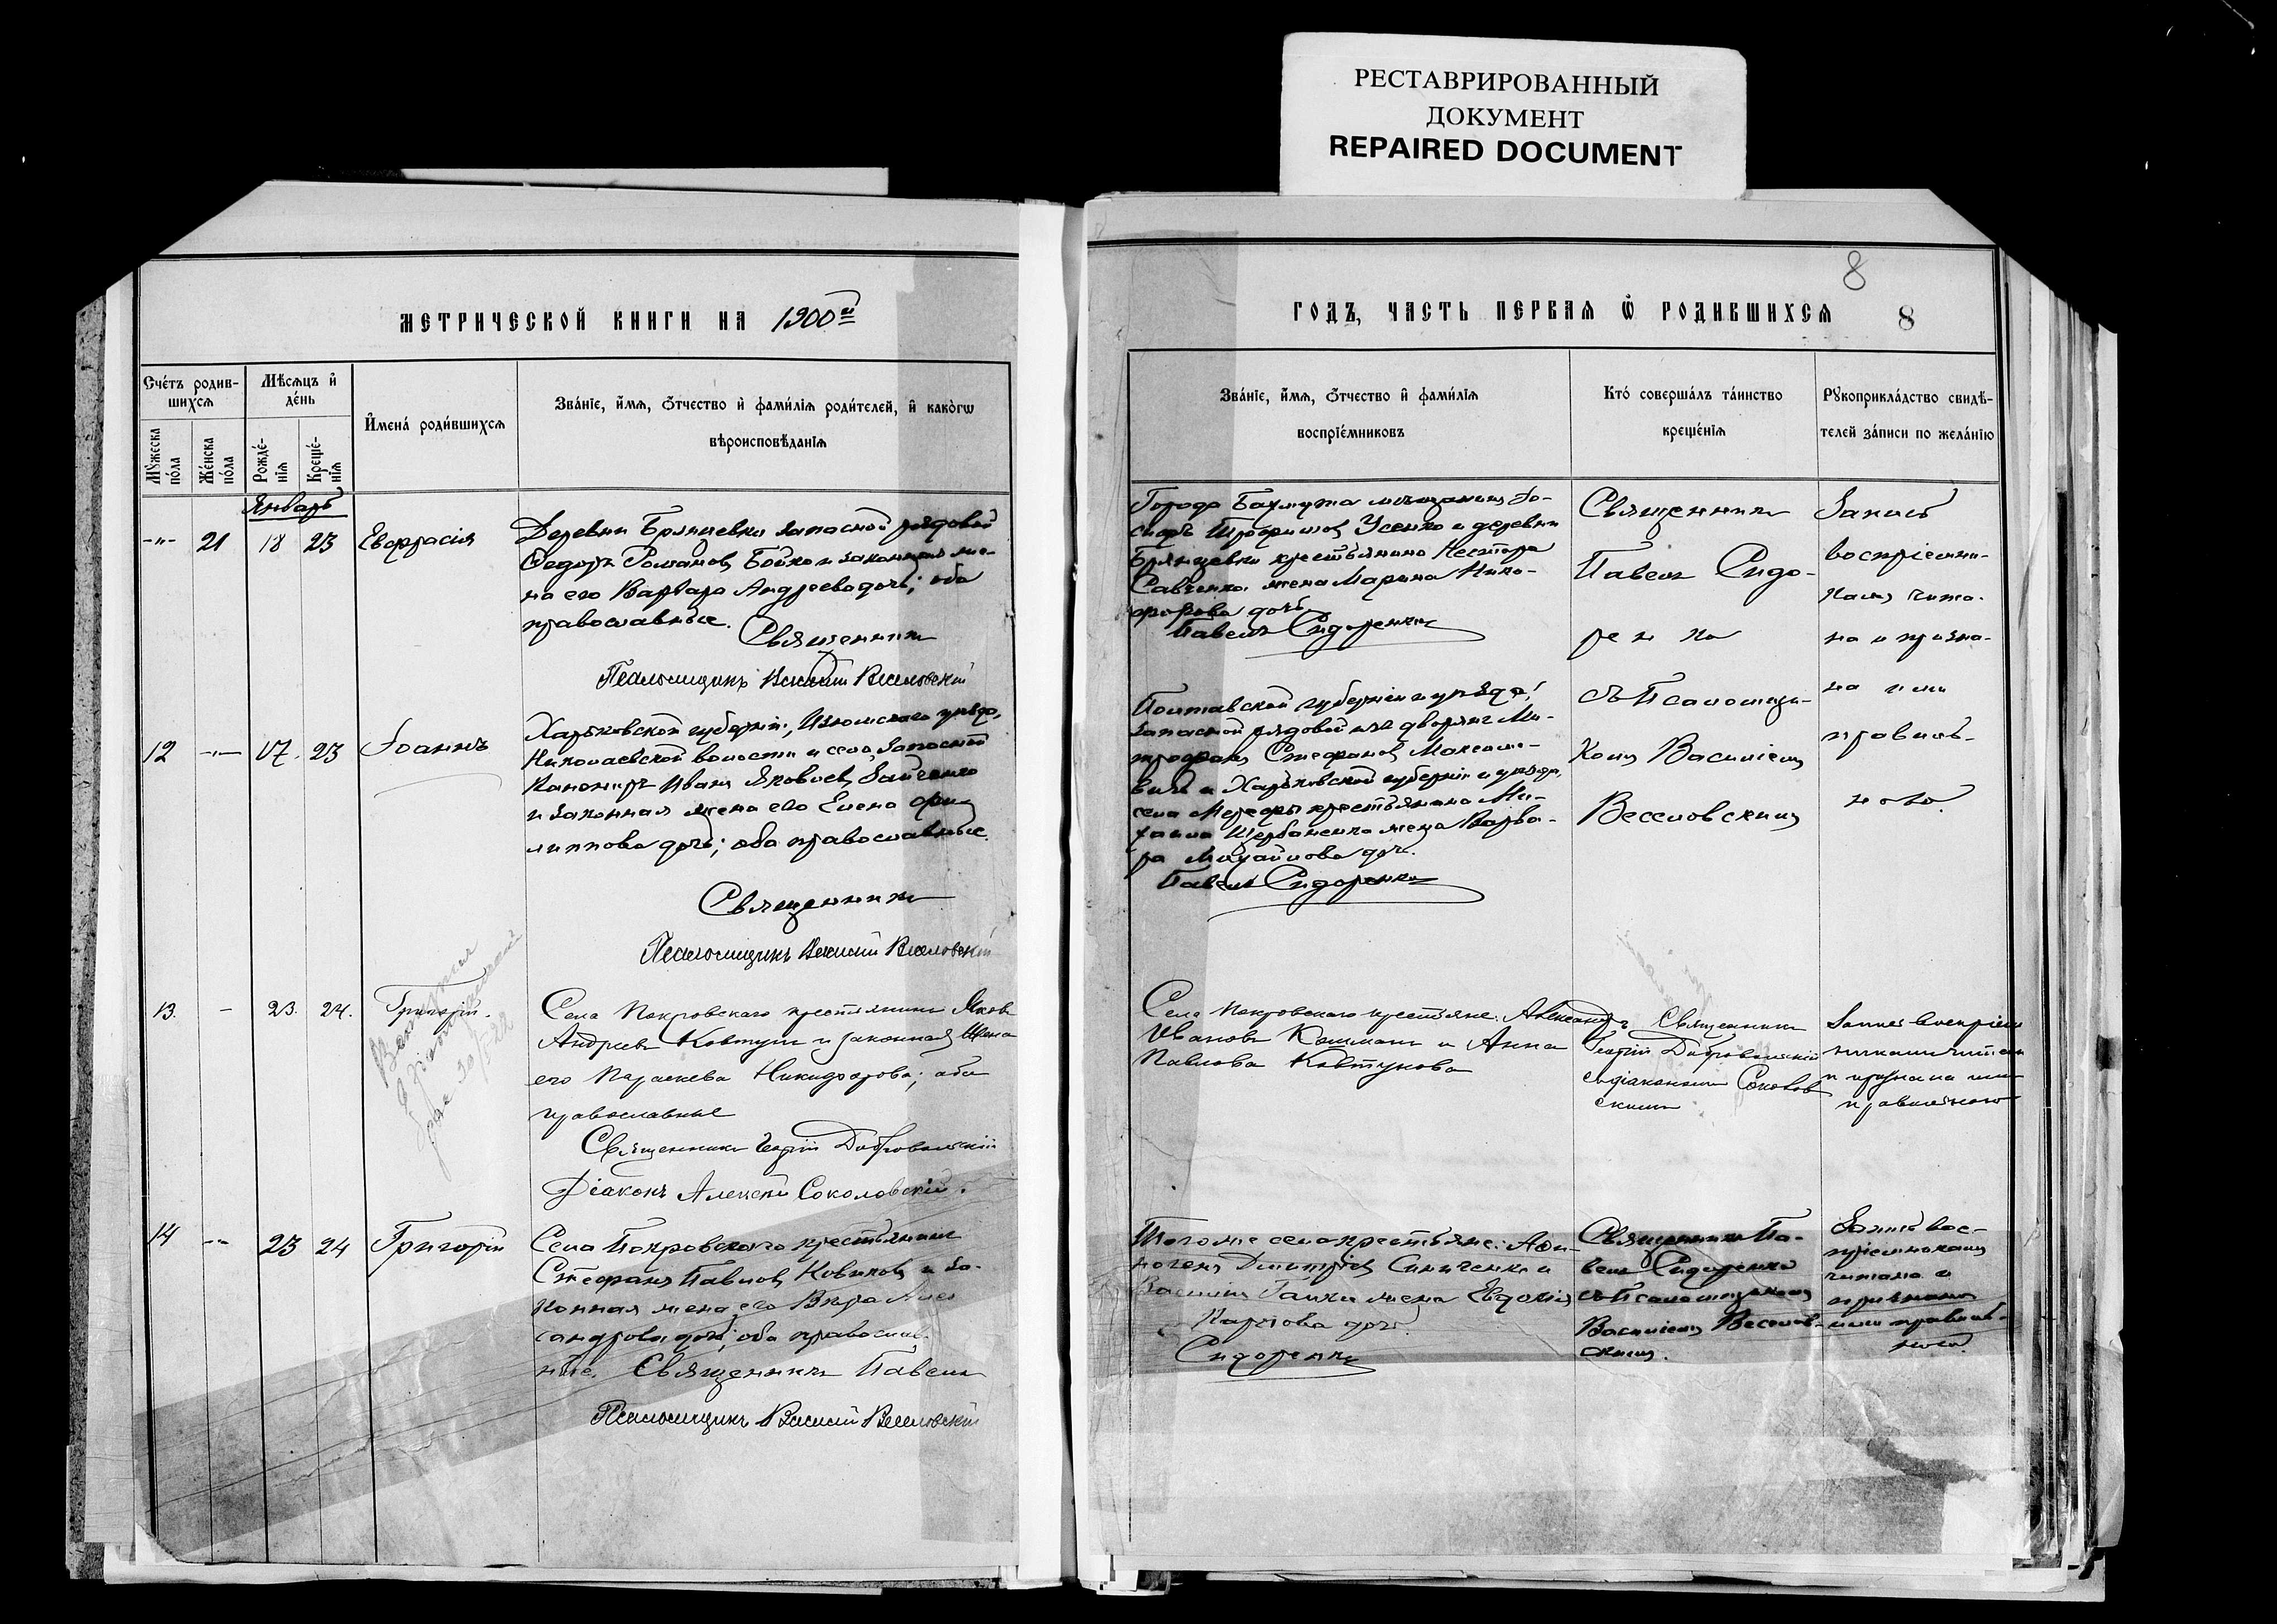 РЕСТАВРИРОВАННЫЙ
ДОКУМЕНТ
REPAIRED DOCUMENT
8
МЕТРИЧЕСКОЙ КНИГИ НА 1900й
ГОДЪ, ЧАСТЬ ПЕРВАЯ Ѿ РОДИВШИХСЯ 8
Счётъ родив-
шихсѧ
Мужеска
пола
Женска
пола
Мѣсѧцъ и
день
Рожде-
нїѧ
Креще-
нїѧ
Имена родившихсѧ
Званїе, имѧ, ѿчество и фамилїѧ родителей, и какогѡ
вѣроисповѣданїѧ
Званїе, имѧ, ѿчество и фамилїѧ
воспрїемниковъ
Кто совершалъ таинство
крещенїѧ
Рукоприкладство свидѣ-
телей записи по желанїю
Январь
-"- 21 18 23 Евфрасія
Деревни Брянцевки запасной рядовой
Ѳедоръ Романовъ Бойко и законная же-
на его Варвара Андреева дочь; оба
православные.
Священникъ
Псаломщикъ Василій Веселовскій
Города Бахмута мѣщанинъ Іо-
сифъ Трофимовъ Усенко и деревни
Брянцевки крестьянина Нестора
Савченка жена Марина Ники-
форова дочь
Павелъ Сидоренко
Священникъ
Павелъ Сидо-
ренко
съ Псаломщи-
комъ Василіемъ
Веселовскимъ
Запись
воспріемни-
ками чита-
на и призна-
на ими
правиль-
ною.
12 -"- 17. 23 Іоаннъ
Харьковской губерніи, Изюмскаго уѣзда,
Николаевской волости и села, запасной
Канониръ Иванъ Яковлевъ Зайченко
и законная жена его Елена Фи-
липпова дочь; оба православные.
Священникъ
Псаломщикъ Василій Веселовскій
Полтавской губерніи и уѣзда,
запасной рядовой изъ дворянъ Ми-
трофанъ Стефановъ Максимо-
вичъ и Харьковской губерніи и уѣзда,
села Мерефы крестьянина Ми-
хаила Щербаненка жена Варва-
ра Михайлова дочь.
Павелъ Сидоренко
13. - 23. 24. Григорій.
Села Покровскаго крестьянинъ Яковъ
Андреевъ Ковтунъ и законная жена
его Параскева Никифорова; оба
православные
Священникъ Георгій Добровольскій
Діаконъ Алексій Соколовскій.
Села Покровскаго крестьяне: Александръ
Ивановъ и Анна
Павлова Ковтунова
Священникъ
Георгій Добровольскій
съ діакономъ Соколов
скимъ
Запись воспріем
никами читана
и признана ими
правильною
14 -"- 23 24 Григорій
Села Покровскаго крестьянинъ
Стефанъ Павловъ Новиковъ и за-
конная жена его Вѣра Алек
сандрова дочь; оба православ-
ные. Священникъ Павелъ
Псаломщикъ Василій Веселовскій
Того же села крестьяне: Афи-
ногенъ Димитріевъ Синиченко и
Василія Галки жена Евдокія
Карпова дочь.
Сидоренко
Священникъ Па-
велъ Сидоренко
съ Псаломщикомъ
Василіемъ Веселов-
скимъ.
Запись вос-
пріемниками
читана и
признана
ими правиль-
ною.